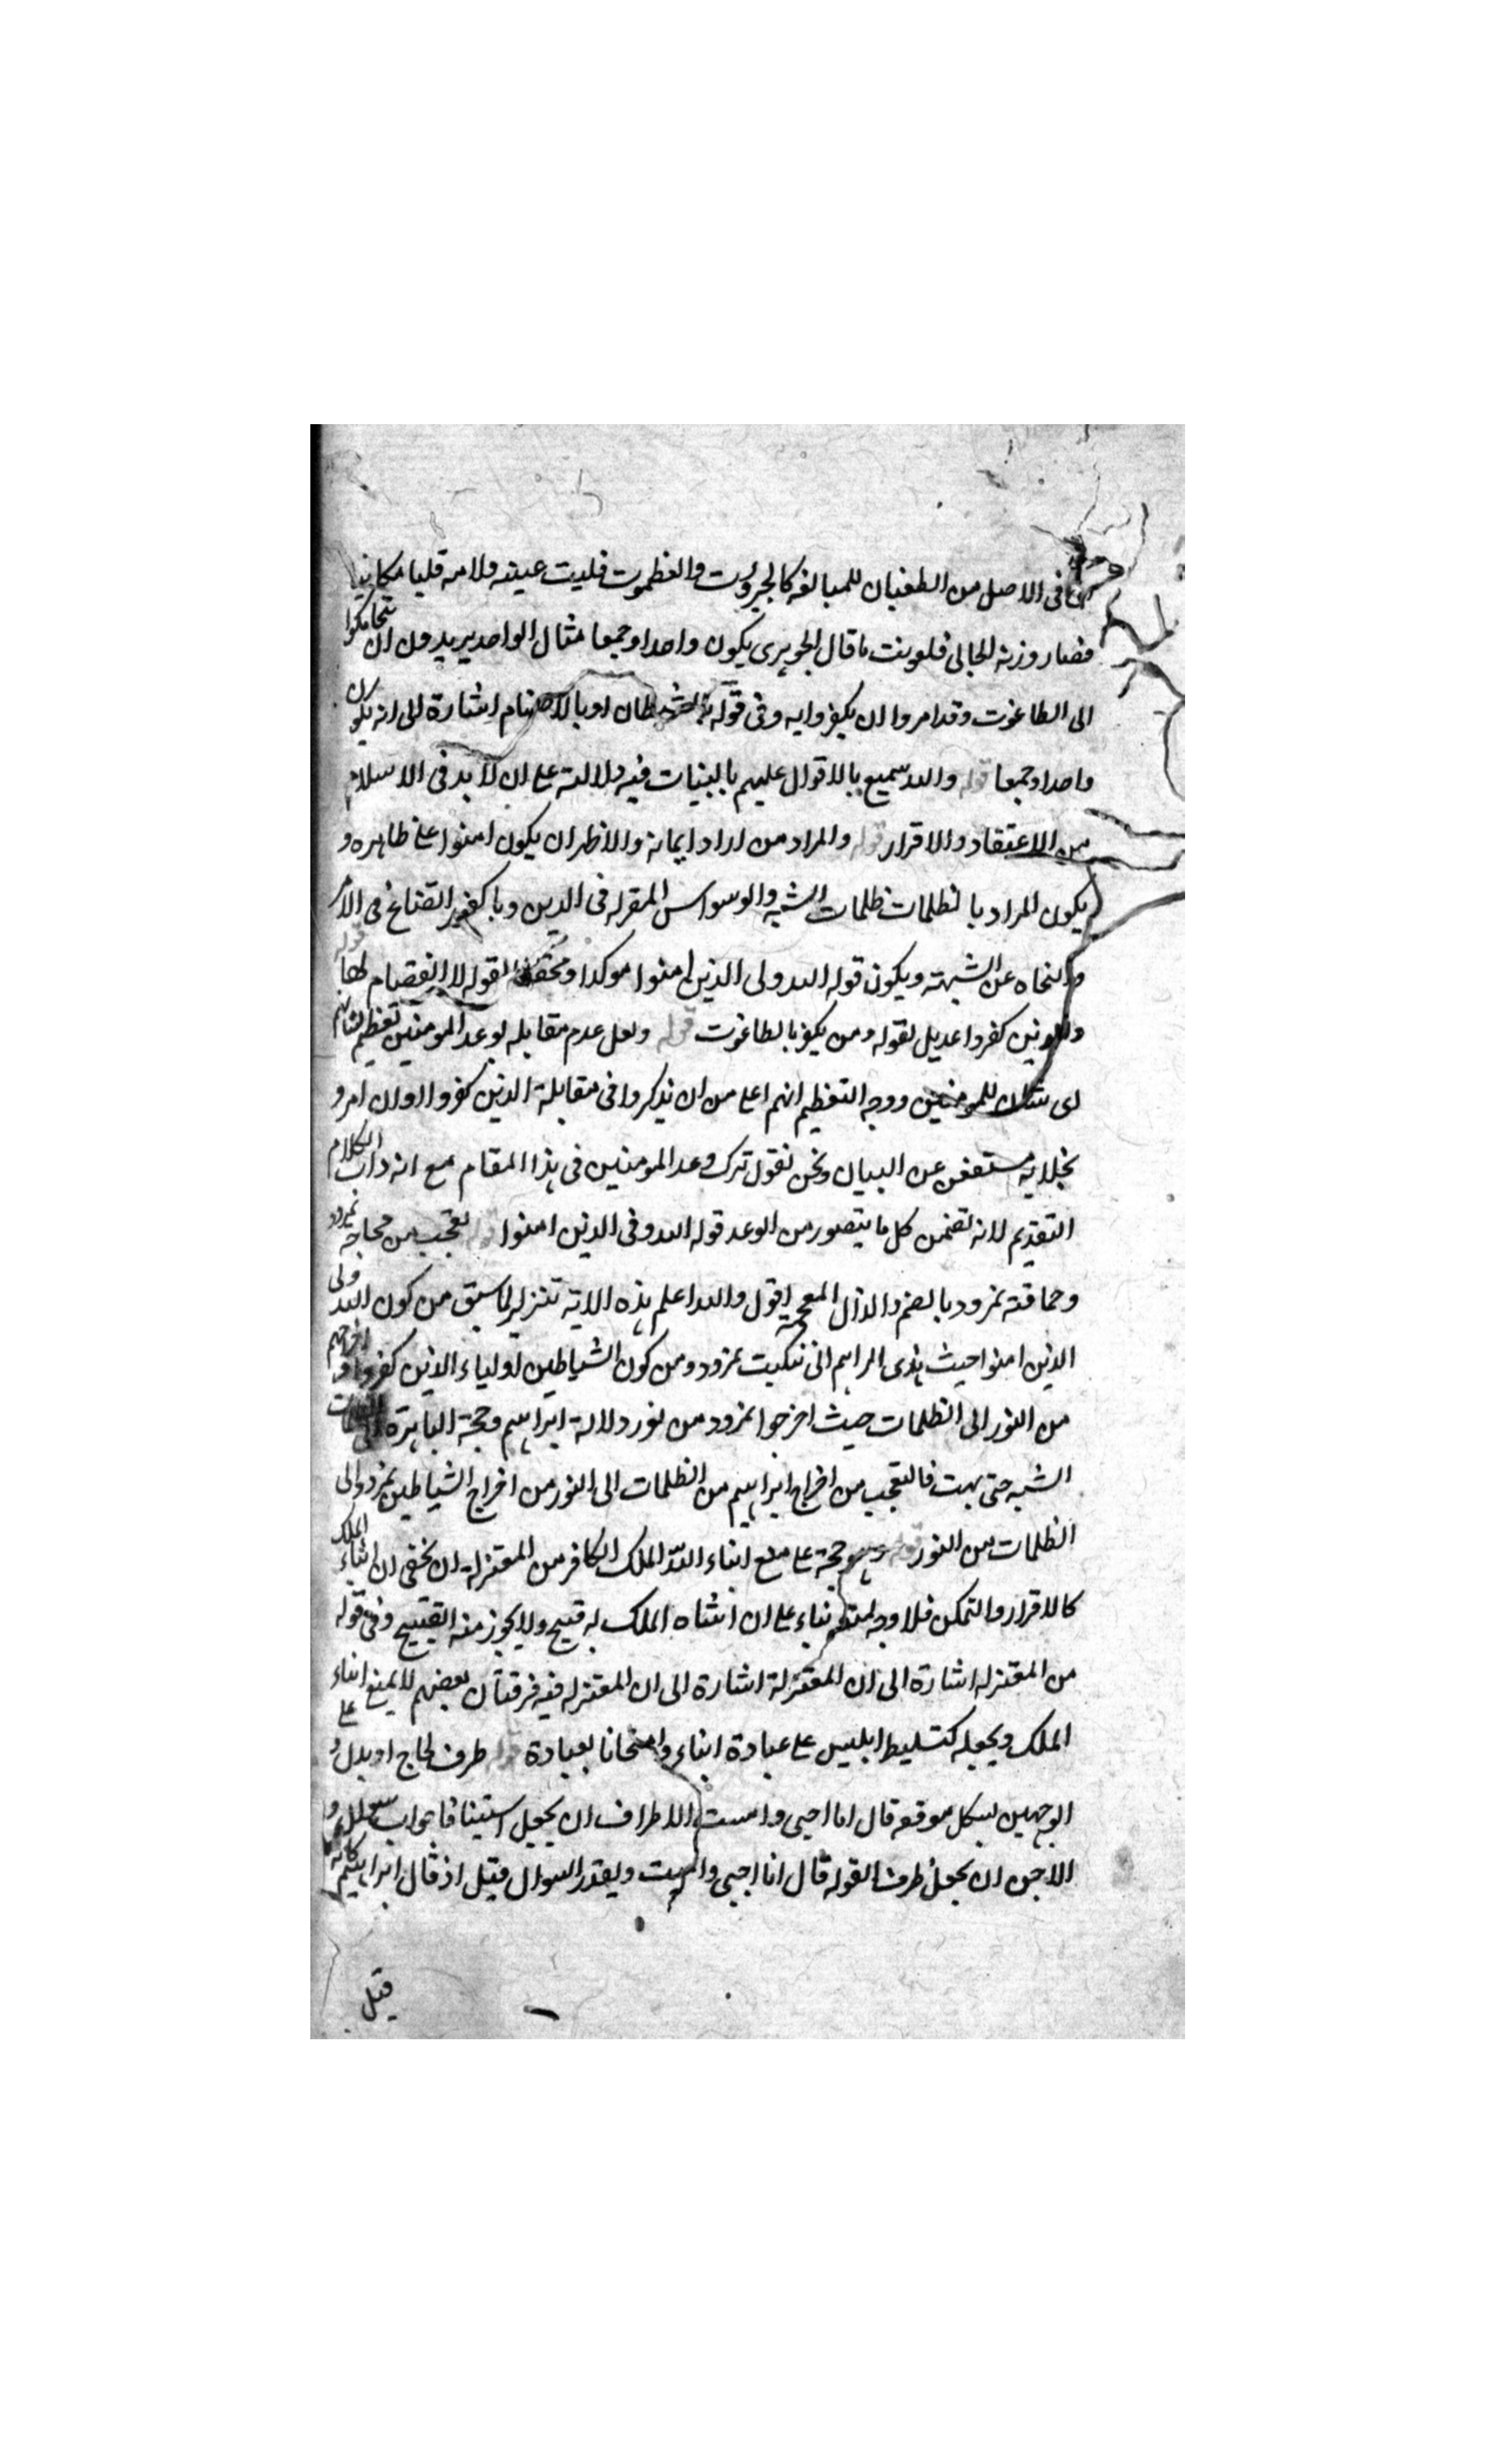 فى الاصل من الطغيان للمبالغه كالجبروت والعظموت فلبت عينه ولامه قلبا مكانيا
فصار وزنه الجالى فلعوت ما قال الجوهرى يكون واحدا وجمعا مثال الواحد يريدون ان يتحاكموا
الى الطاغوت وقد امروا ان يكفروا به وفى قوله بالشيطان او بالاصنام اشارة الى انه يكون
واحدا وجمعا قوله والله سميع بالاقوال عليهم بالبنيات فيه دلالة على ان لا بد فى الاسلام
من الاعتقاد والاقرار قوله والمراد من اراد ايمانه والاظهر ان يكون امنوا على ظاهره و
يكون المراد بالظلمات ظلمات الشبه والوسواس المقرله فى الدين وبا كفر
والنحاه عن الشبهته ويكون قوله الله ولى الذين امنوا موكدا ومحققا لقوله لا انفصام لها قوله
والذين كفروا عديل لقوله ومن يكفر بالطاغوت قوله ولعل عدم مقابله لوعد المومنين تعظيم لشانهم
اى شان للمومنين ووجه التعظيم انهم اعلى من ان يذكروا فى مقابلة الذين كفروا وان امرو
بجلايه مستغن عن البيان ونحن نقول ترك وعد المومنين فى هذا المقام مع انه داب الكلام
التقديم لانه تضمن كل ما يتصور من الوعد قوله الله وفى الذين امنوا قوله تعجب من محاجة نمرود
وحماقته نمرود بالضم والذال المعجمة اقول والله اعلم هذه الاية تنزيل لما سبق من كون الله ولى
الذين امنوا حيث هدى ابراهيم الى تبكيت نمرود ومن كون الشياطين اولياء الذين كفروا اخرجهم
من النور الى الظلمات حيث اخرجوا نمرود من نور دلالة ابراهيم وحجة الباهرة الى ظلمات
الشبه حتى بهت فالتعجب من اخراج ابراهيم من الظلمات الى النور من اخراج الشياطين نمرود الى
الظلمات من النور قوله وهو حجة على منع ايتاء الله الملك الكافر من المعتزلة ان يخفى ان ايتاء الملك
كالاقرار والتمكن فلا وجه لمنعه بناء على ان ايتاه الملك له قبيح ولا يجوز منه القبيح وفى قوله
من المعتزله اشارة الى ان المعتزلة اشارة الى ان المعتزله فيه فرقتان بعضهم لا يمنع ايتاء
الملك ويجعله كتسليط ابليس على عبادة ابتاء وامتحانا لعباده قوله ظرف لحاج او بدل و على
الوجهين يشكل موقعه قال انا احيى واميت الا ظراف ان يجعل استينافا جواب سؤال و
الاحسن ان يجعل ظرفا لقوله قال انا احيى واميت ويقدر السوال قبل اذ قال ابراهيم كانه
قيل